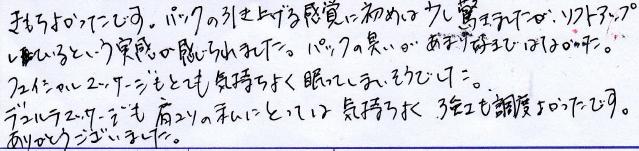 きもちよかったです。パックの引き上げる感覚に初めは少し驚きましたが、リフトアップ
しているという実感が感じられました。パックの臭いがあまり好きではなかった。
フェイシャルマッサージもとても気持ちよく眠ってしまいそうでした。
デコルテマッサージも肩コリの私にとっては気持ちよく 強さも調度よかったです。
ありがとうございました。